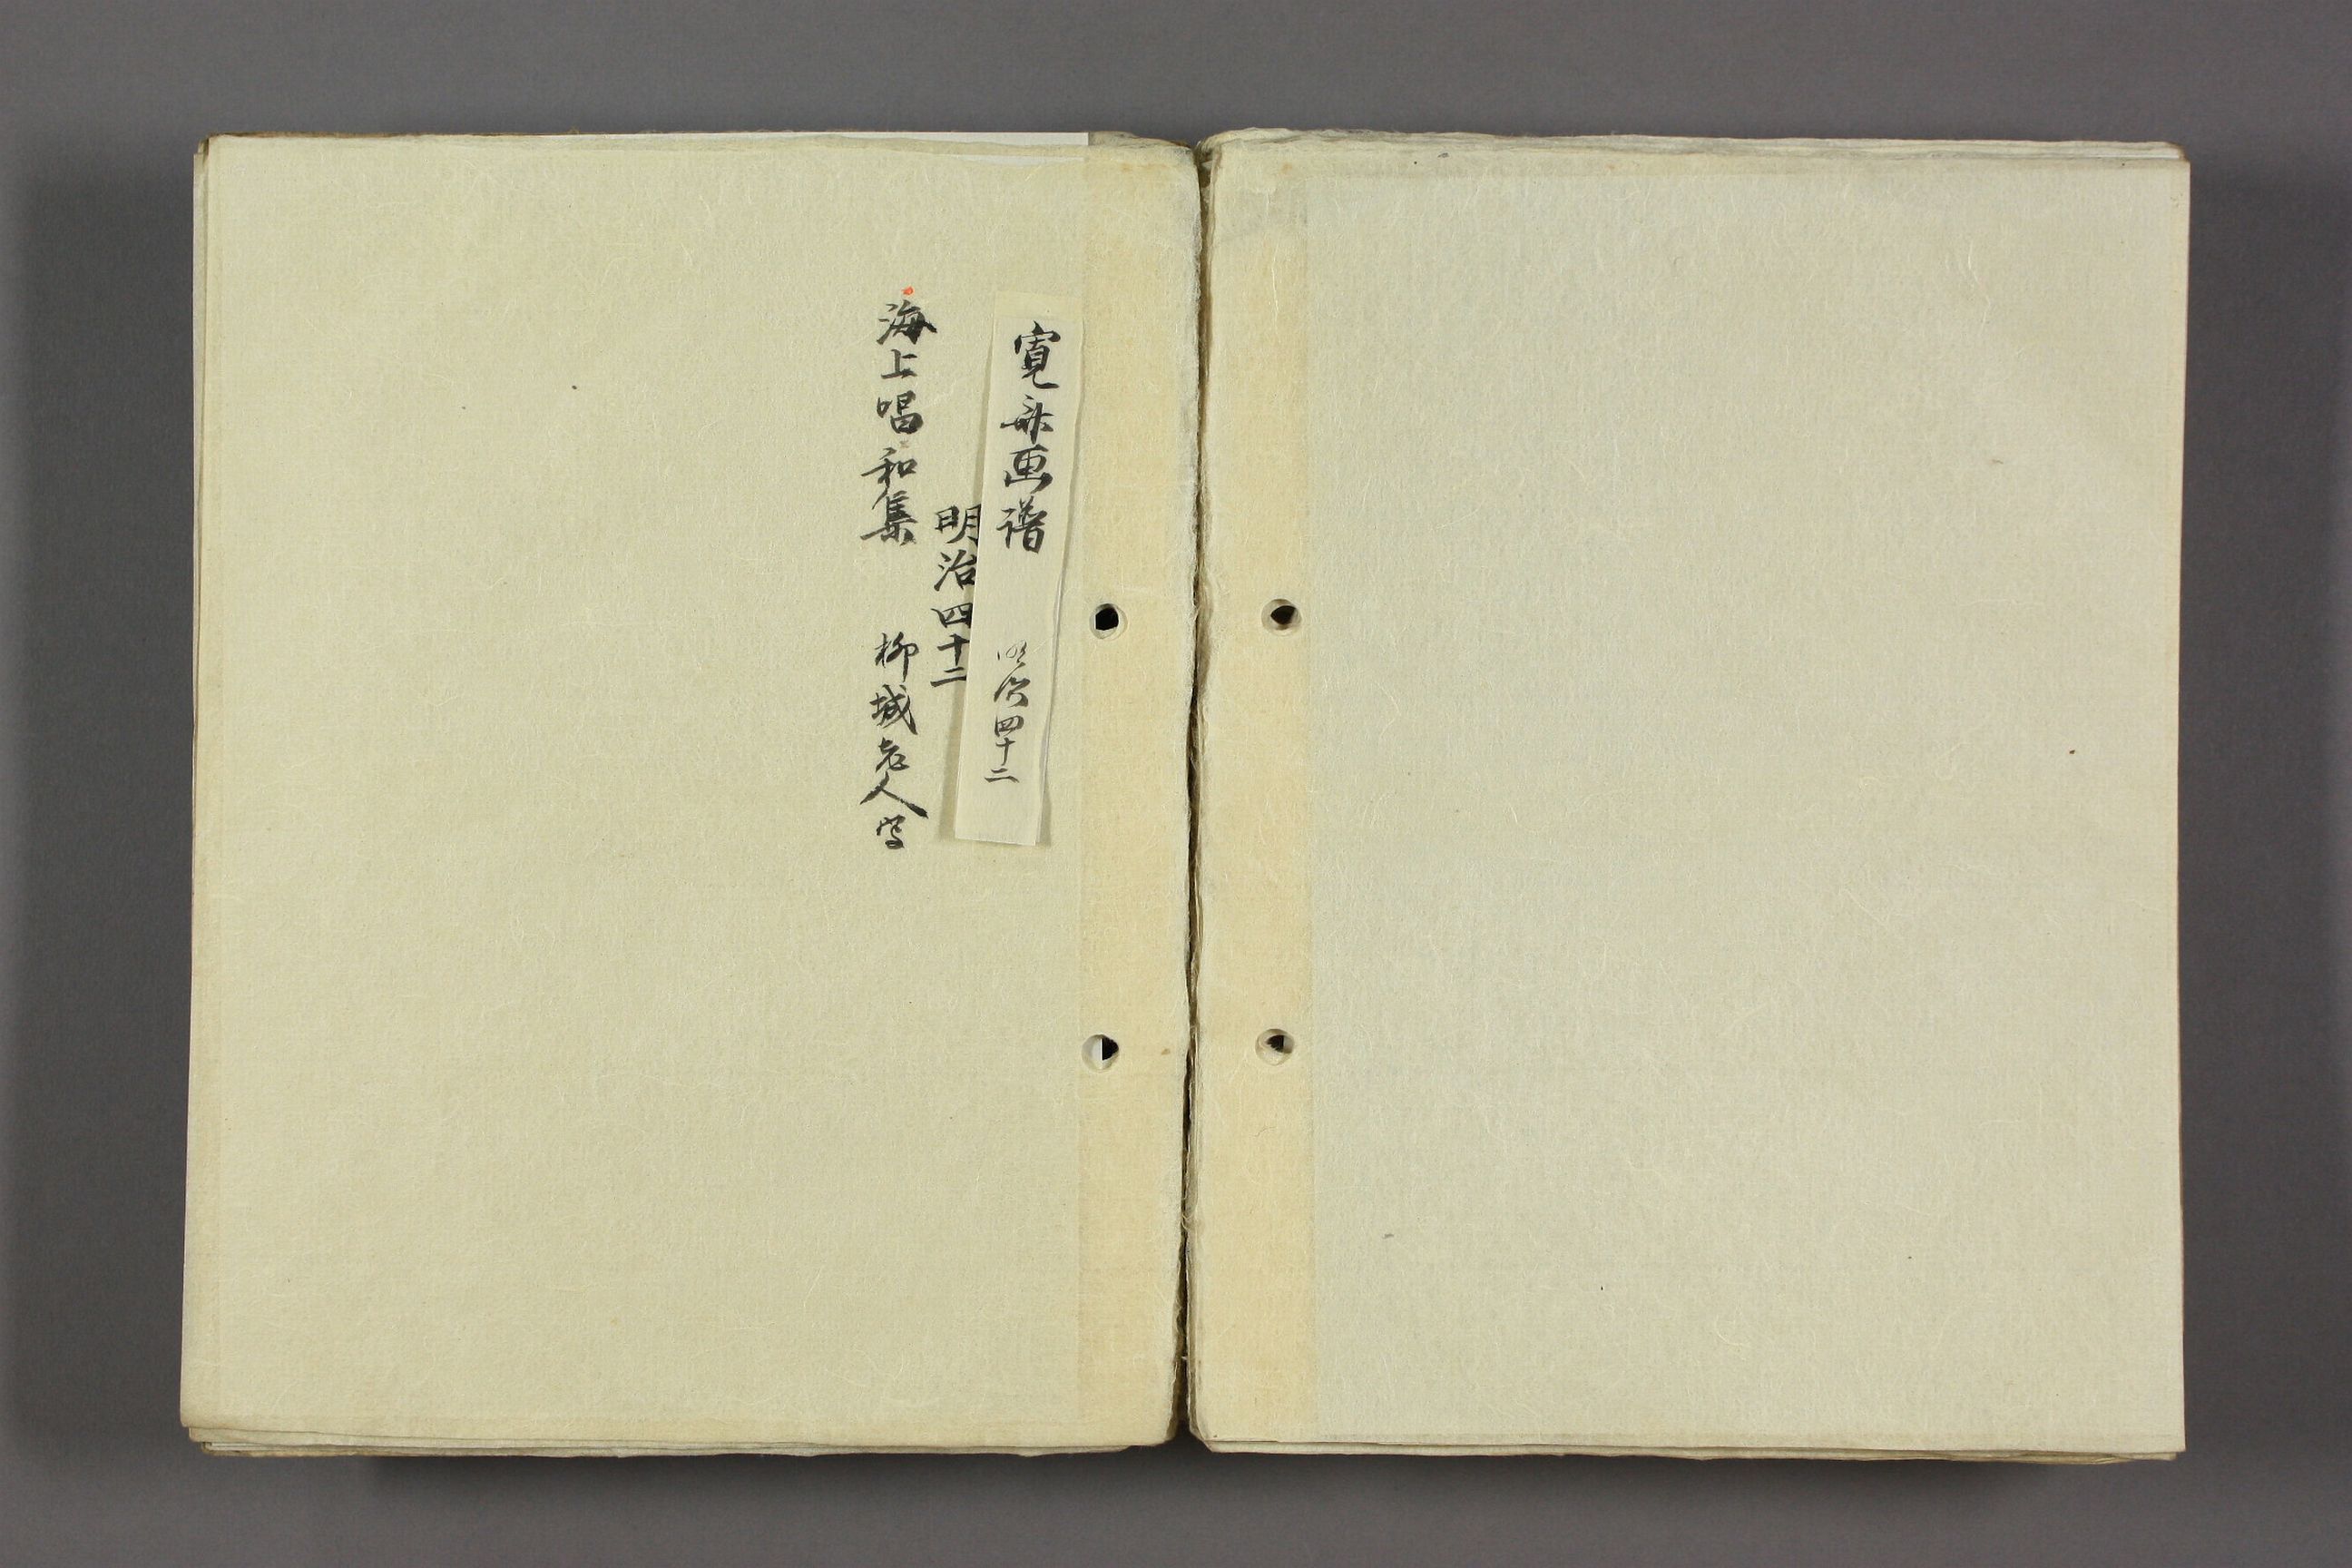 寛斎画譜 明治四十二
明治四十二
海上唱和集 柳城老人写